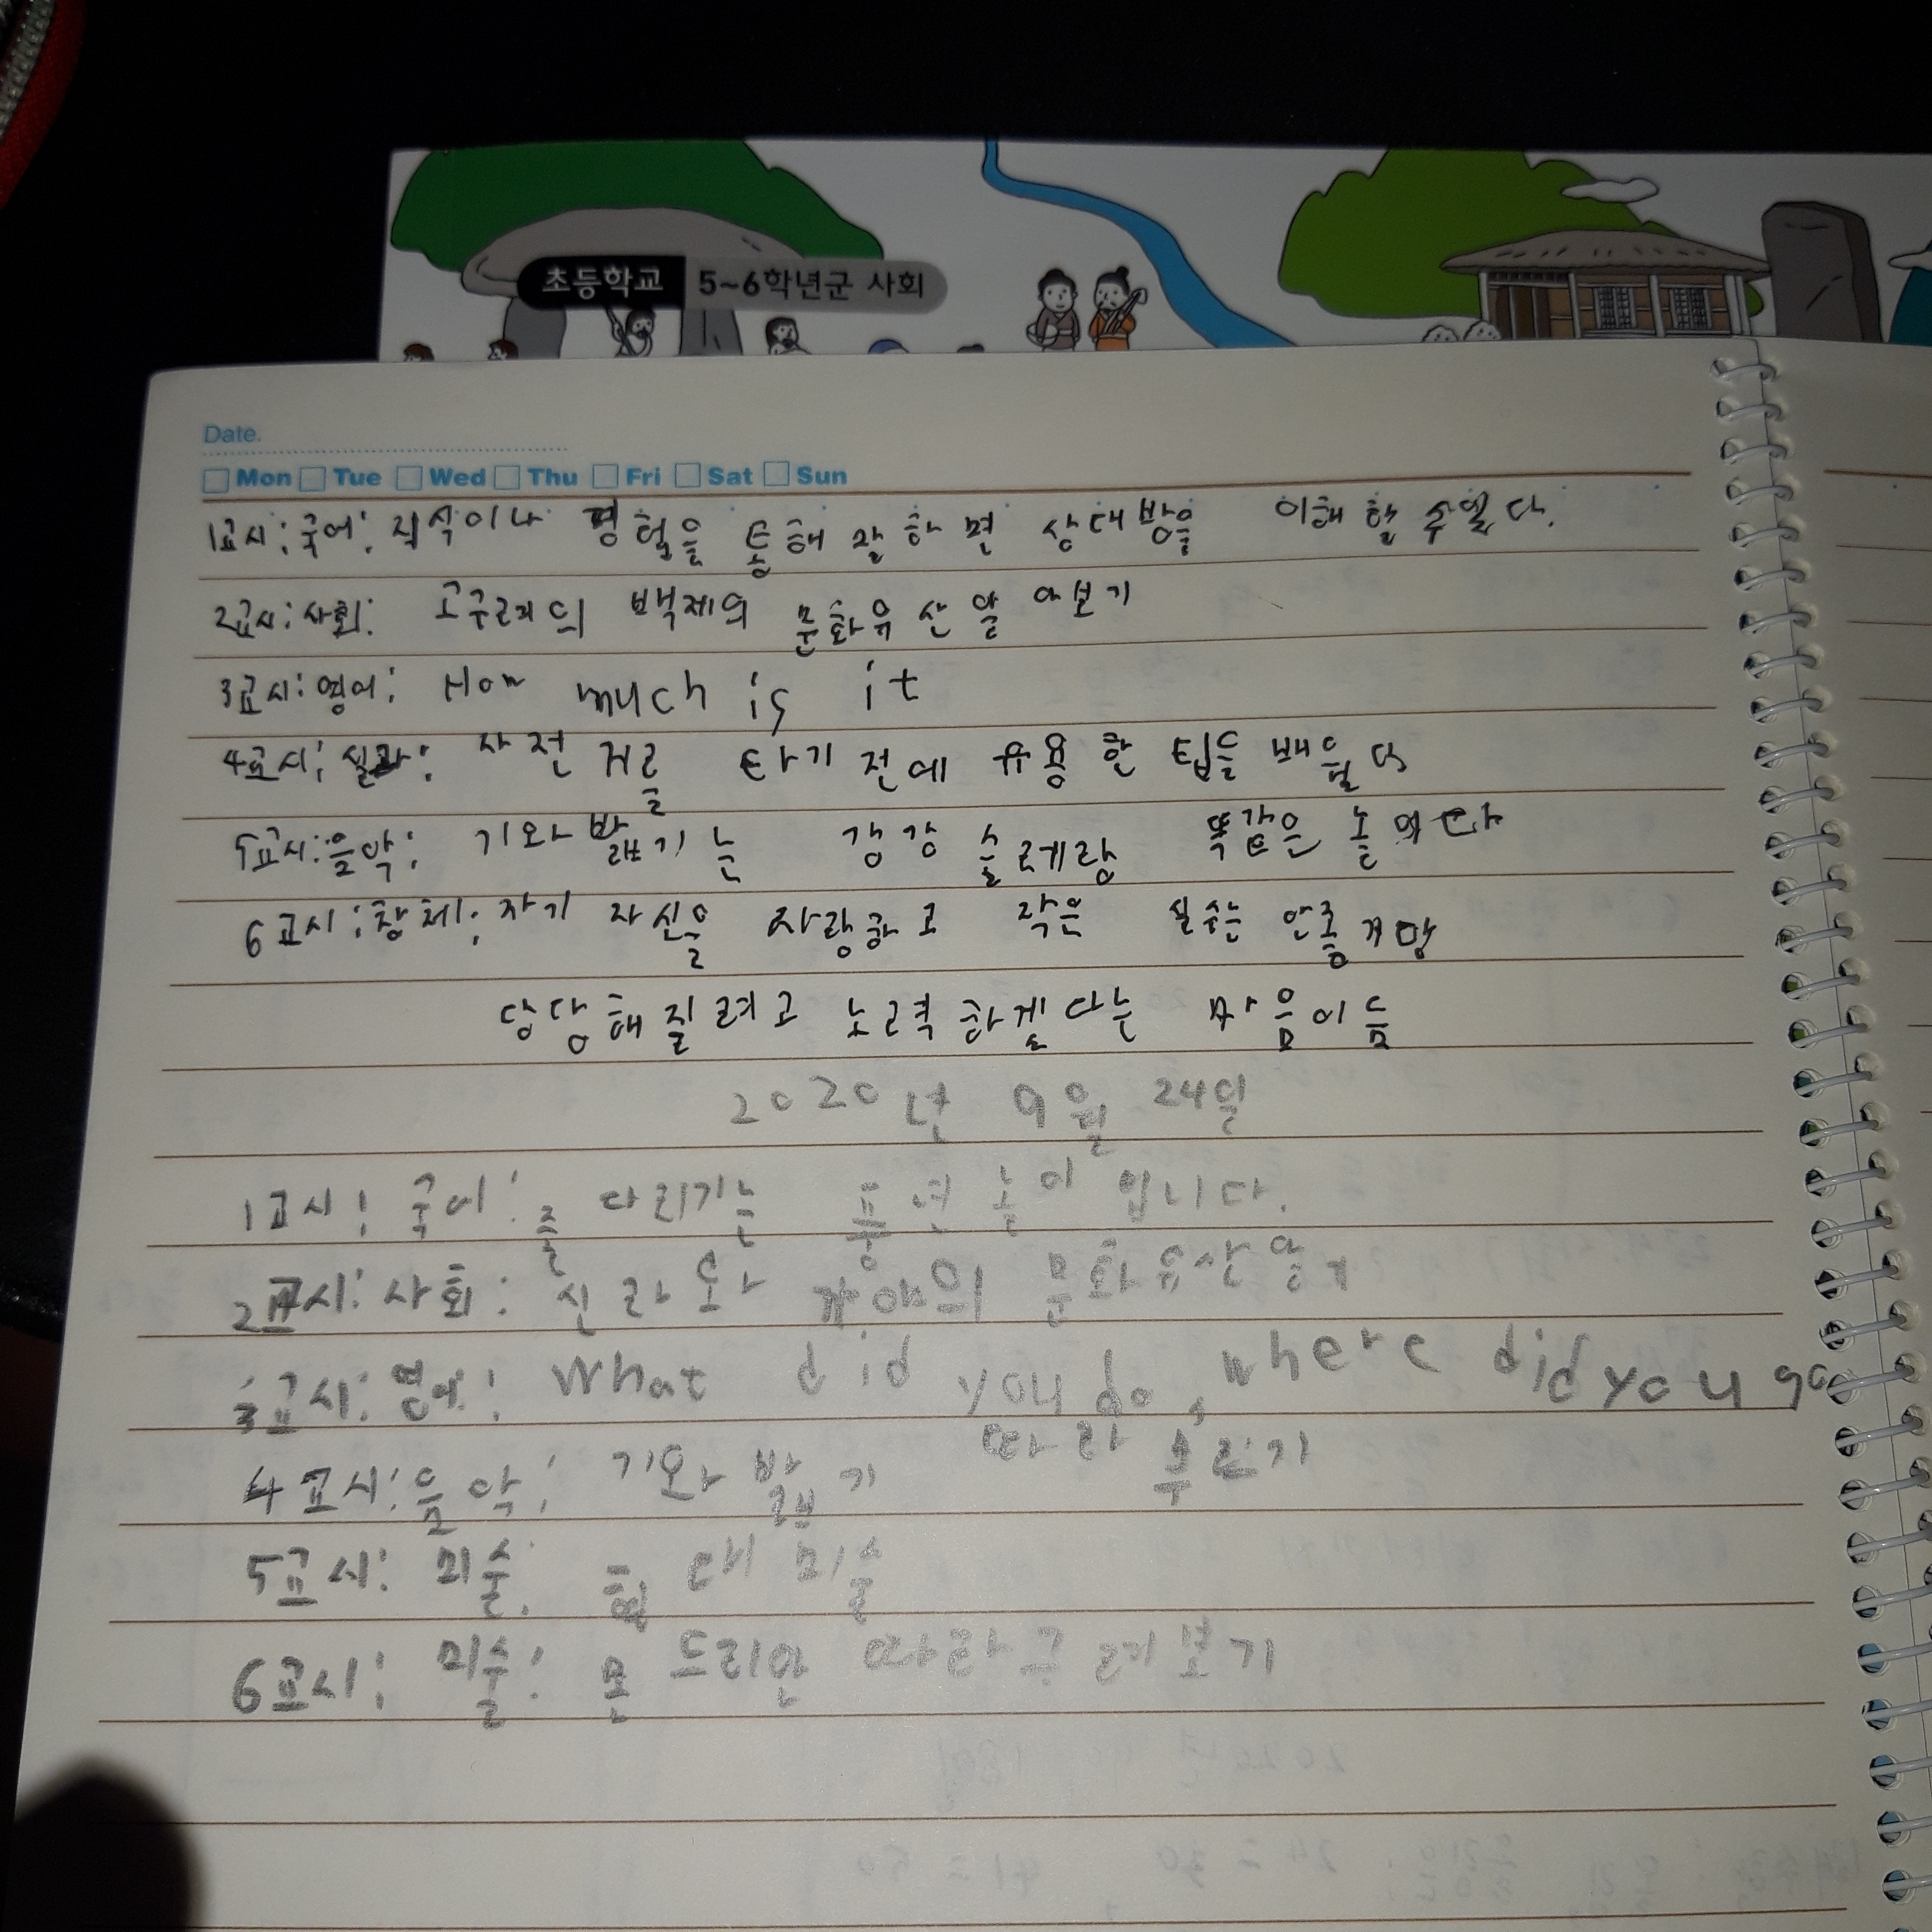 초등학교 5~6학년군 사회
Date.
Mon Tue Wed Thu Fri Sat Sun
1교시: 국어: 직식이나 경험을 통해 잘하면 상대방을 이해 할 수있다.
2교시: 사회: 고구려의 백제의 문화유산알아보기
3교시: 영어: How much is it
4교시: 실과: 사전거를 타기 전에 유용한 팁들 배웠다
5교시: 음악: 기와밟기는 강강술레랑 똑같은 놀이다
6교시: 창체: 자기 자신을 사랑하고 작은 실수는 안좋게말
당당해질려고 노력하겠다는 마음이듬
2020년 9월 24일
1교시: 국어: 줄다리기는 풍년놀이입니다.
2교시: 사회: 신라와 가야의 문화유산알기
3교시: 영어: What did you do, where did you go
4교시: 음악: 기와밟기 따라 부르기
5교시: 미술: 현대미술
6교시: 미술: 몬드리안 따라그려보기